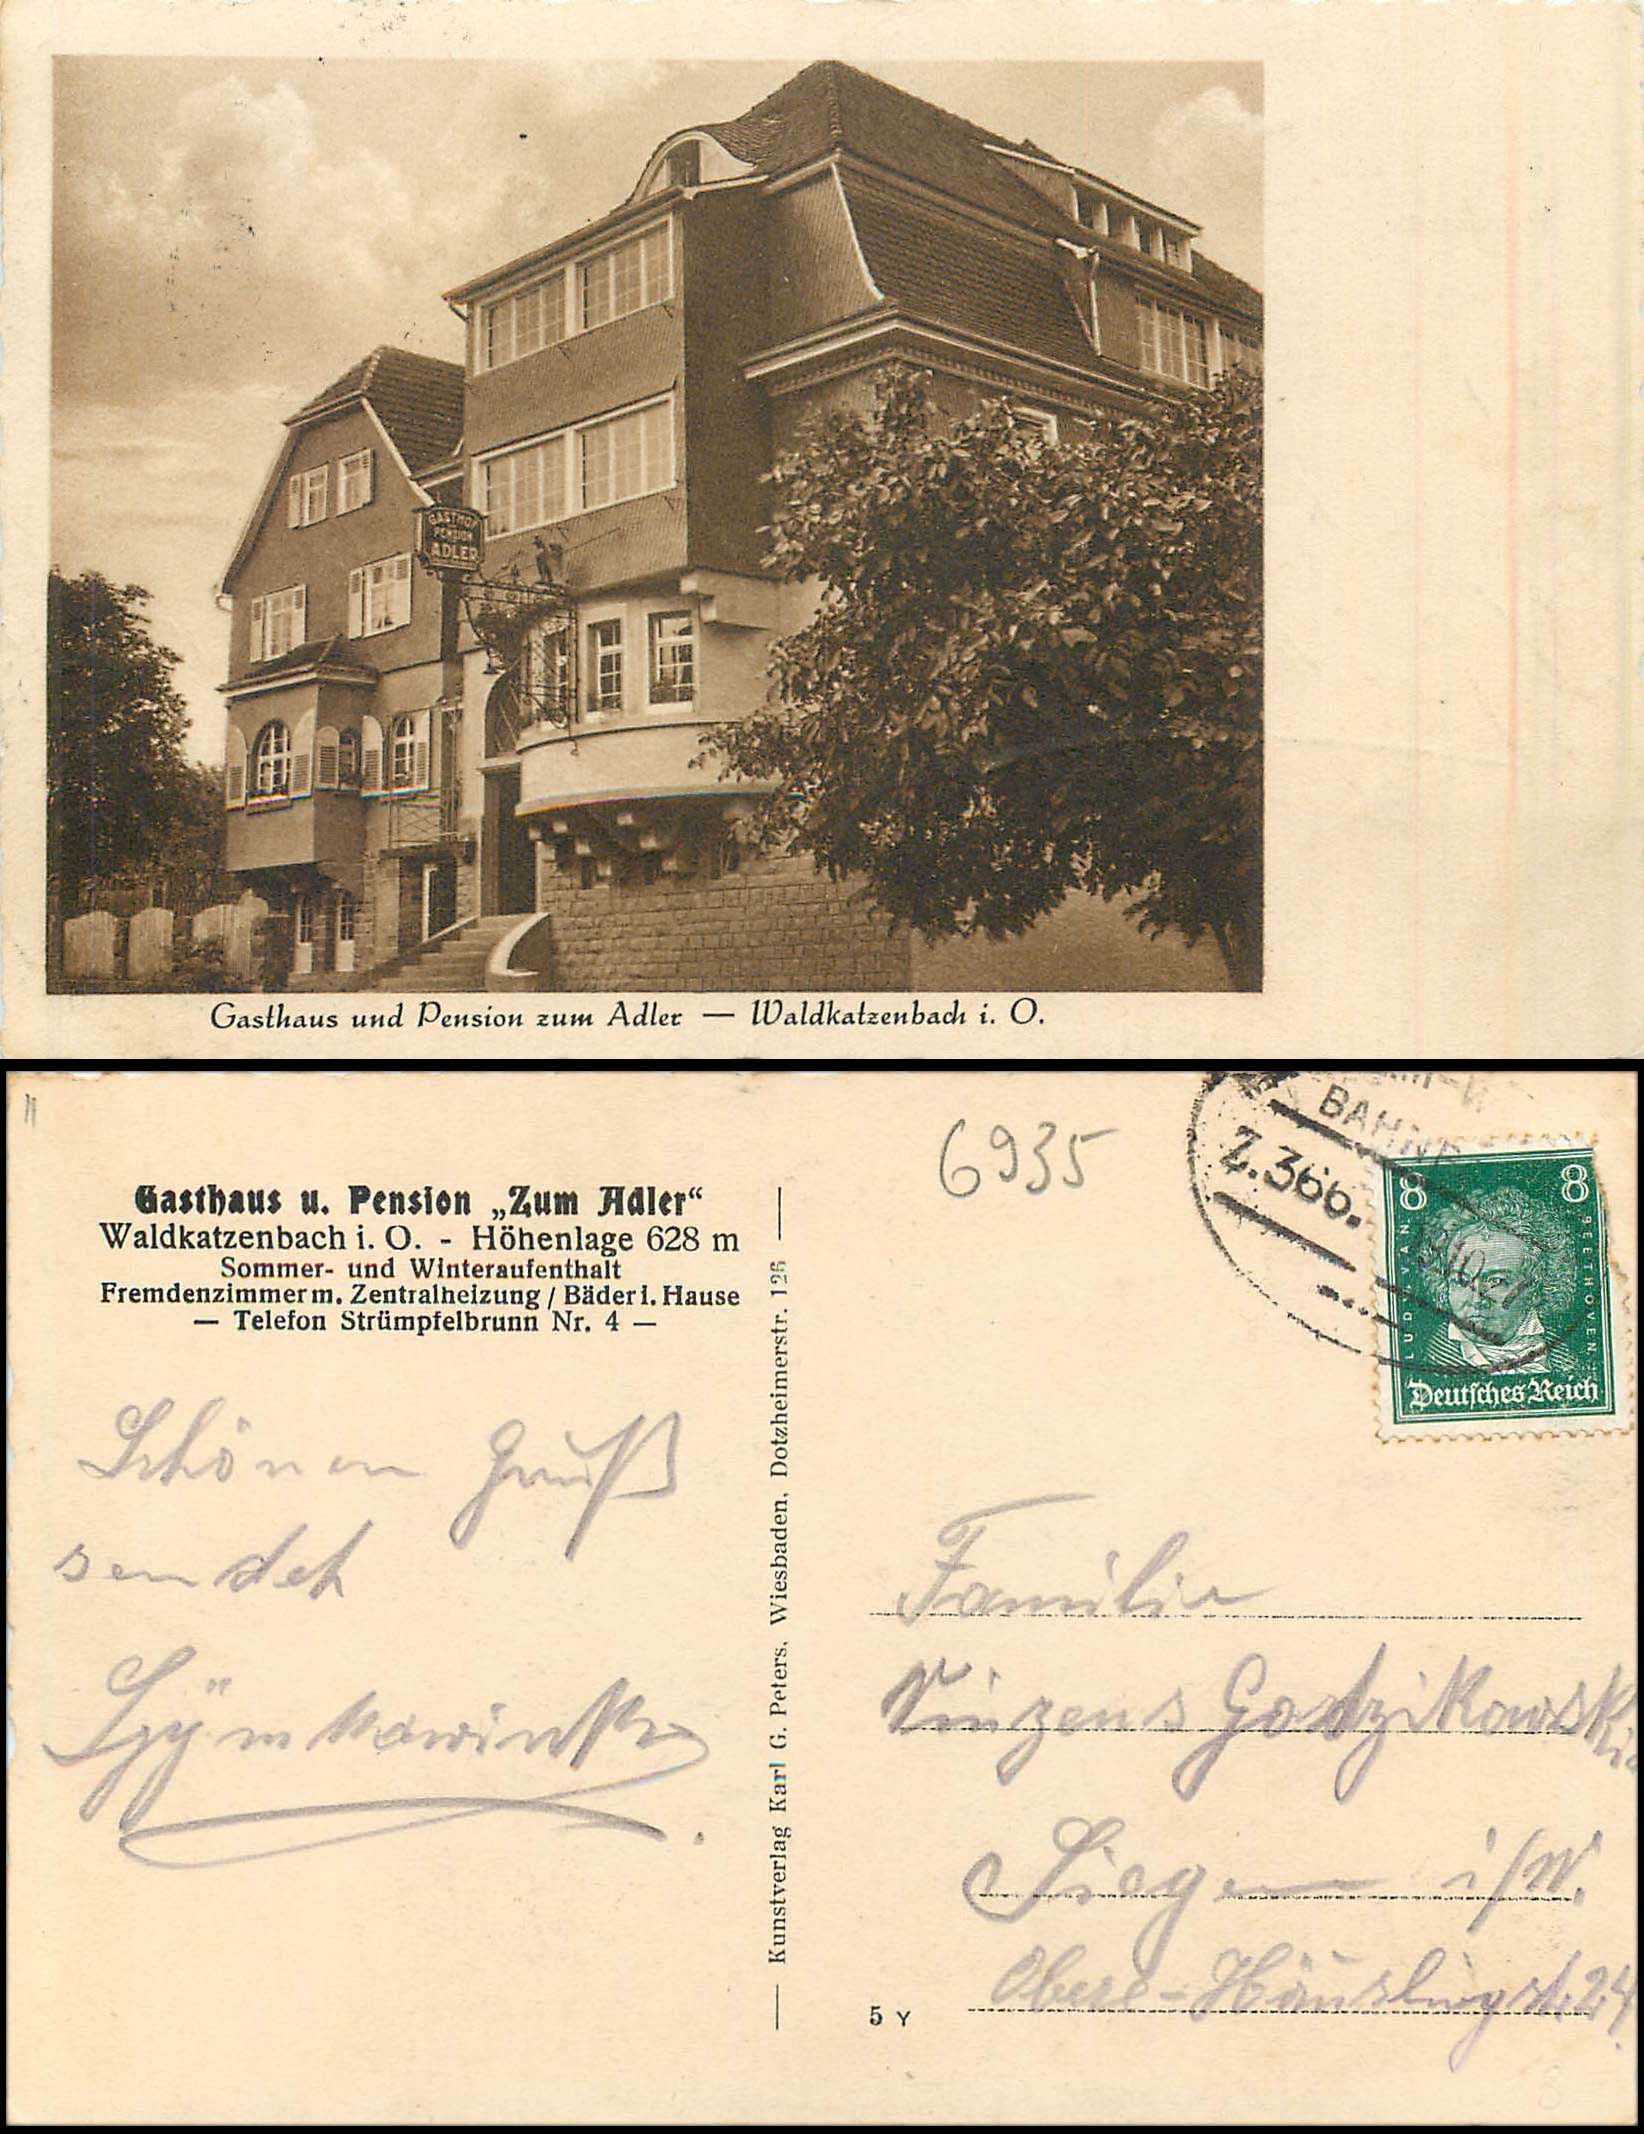 GASTHOF
PENSION
ADLER
Gasthaus und Pension zum Adler — Waldkatzenbach i. O.
6935
BAHNP
Z.366.
Gasthaus u. Pension „Zum Adler“
Waldkatzenbach i. O. - Höhenlage 628 m
Sommer- und Winteraufenthalt
Fremdenzimmer m. Zentralheizung / Bäder i. Hause
— Telefon Strümpfelbrunn Nr. 4 —
8 8
LUD. VAN BEETHOVEN
Deutsches Reich
Schönen Gruß
sendet
Kunstverlag Karl G. Peters, Wiesbaden, Dotzheimerstr. 126
Familie
Vinzens Godzikowski
Siegen i/W.
Obere-Häuslingst. 24.
5 Y